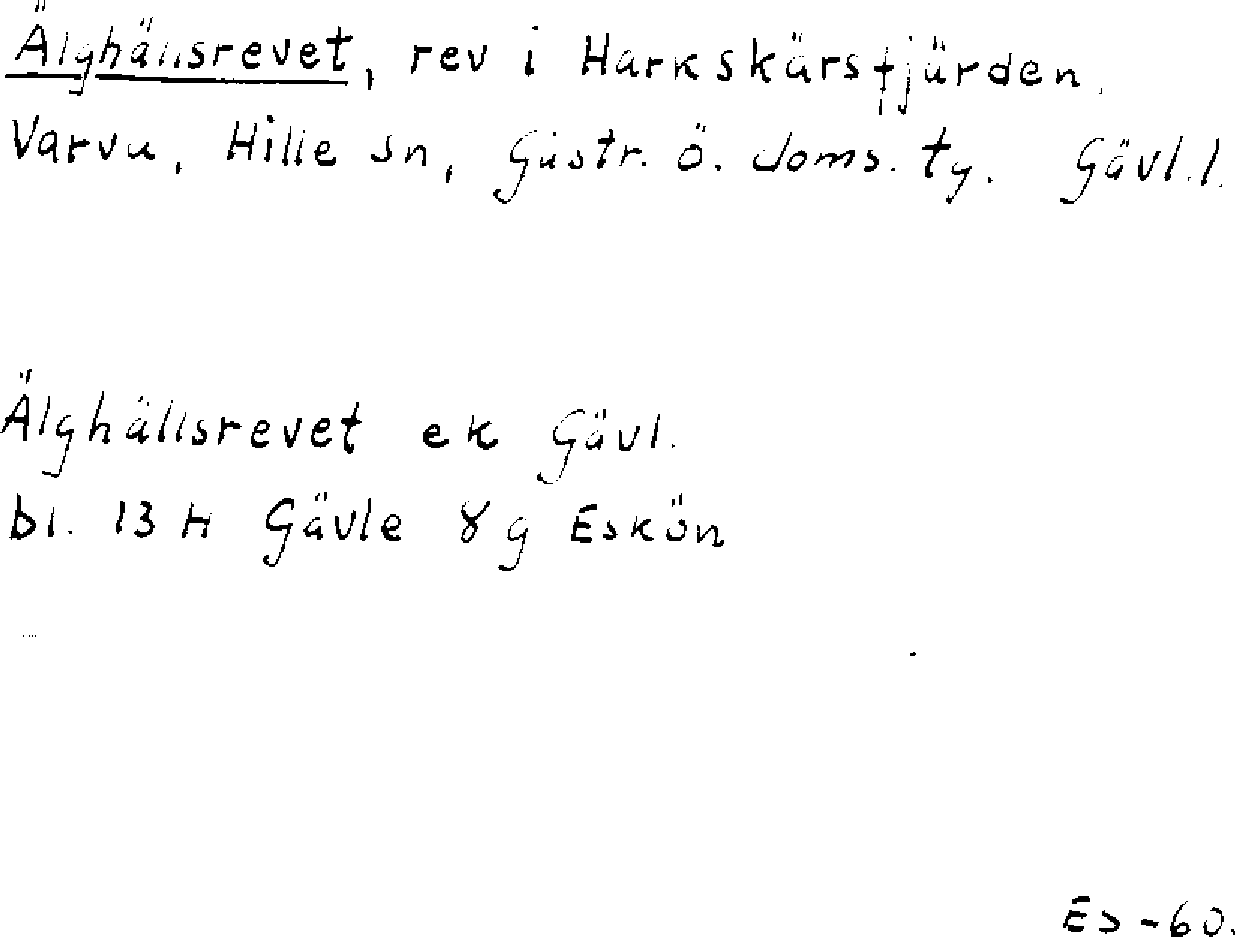 Älghällsrevet, rev i Harkskärsfjärden.
Varva, Hille sn, Gästr. ö. doms. ty. Gävl.l.
Älghällsrevet ek Gävl.
bl. 13 H Gävle 8 g Eskön
Es -60.